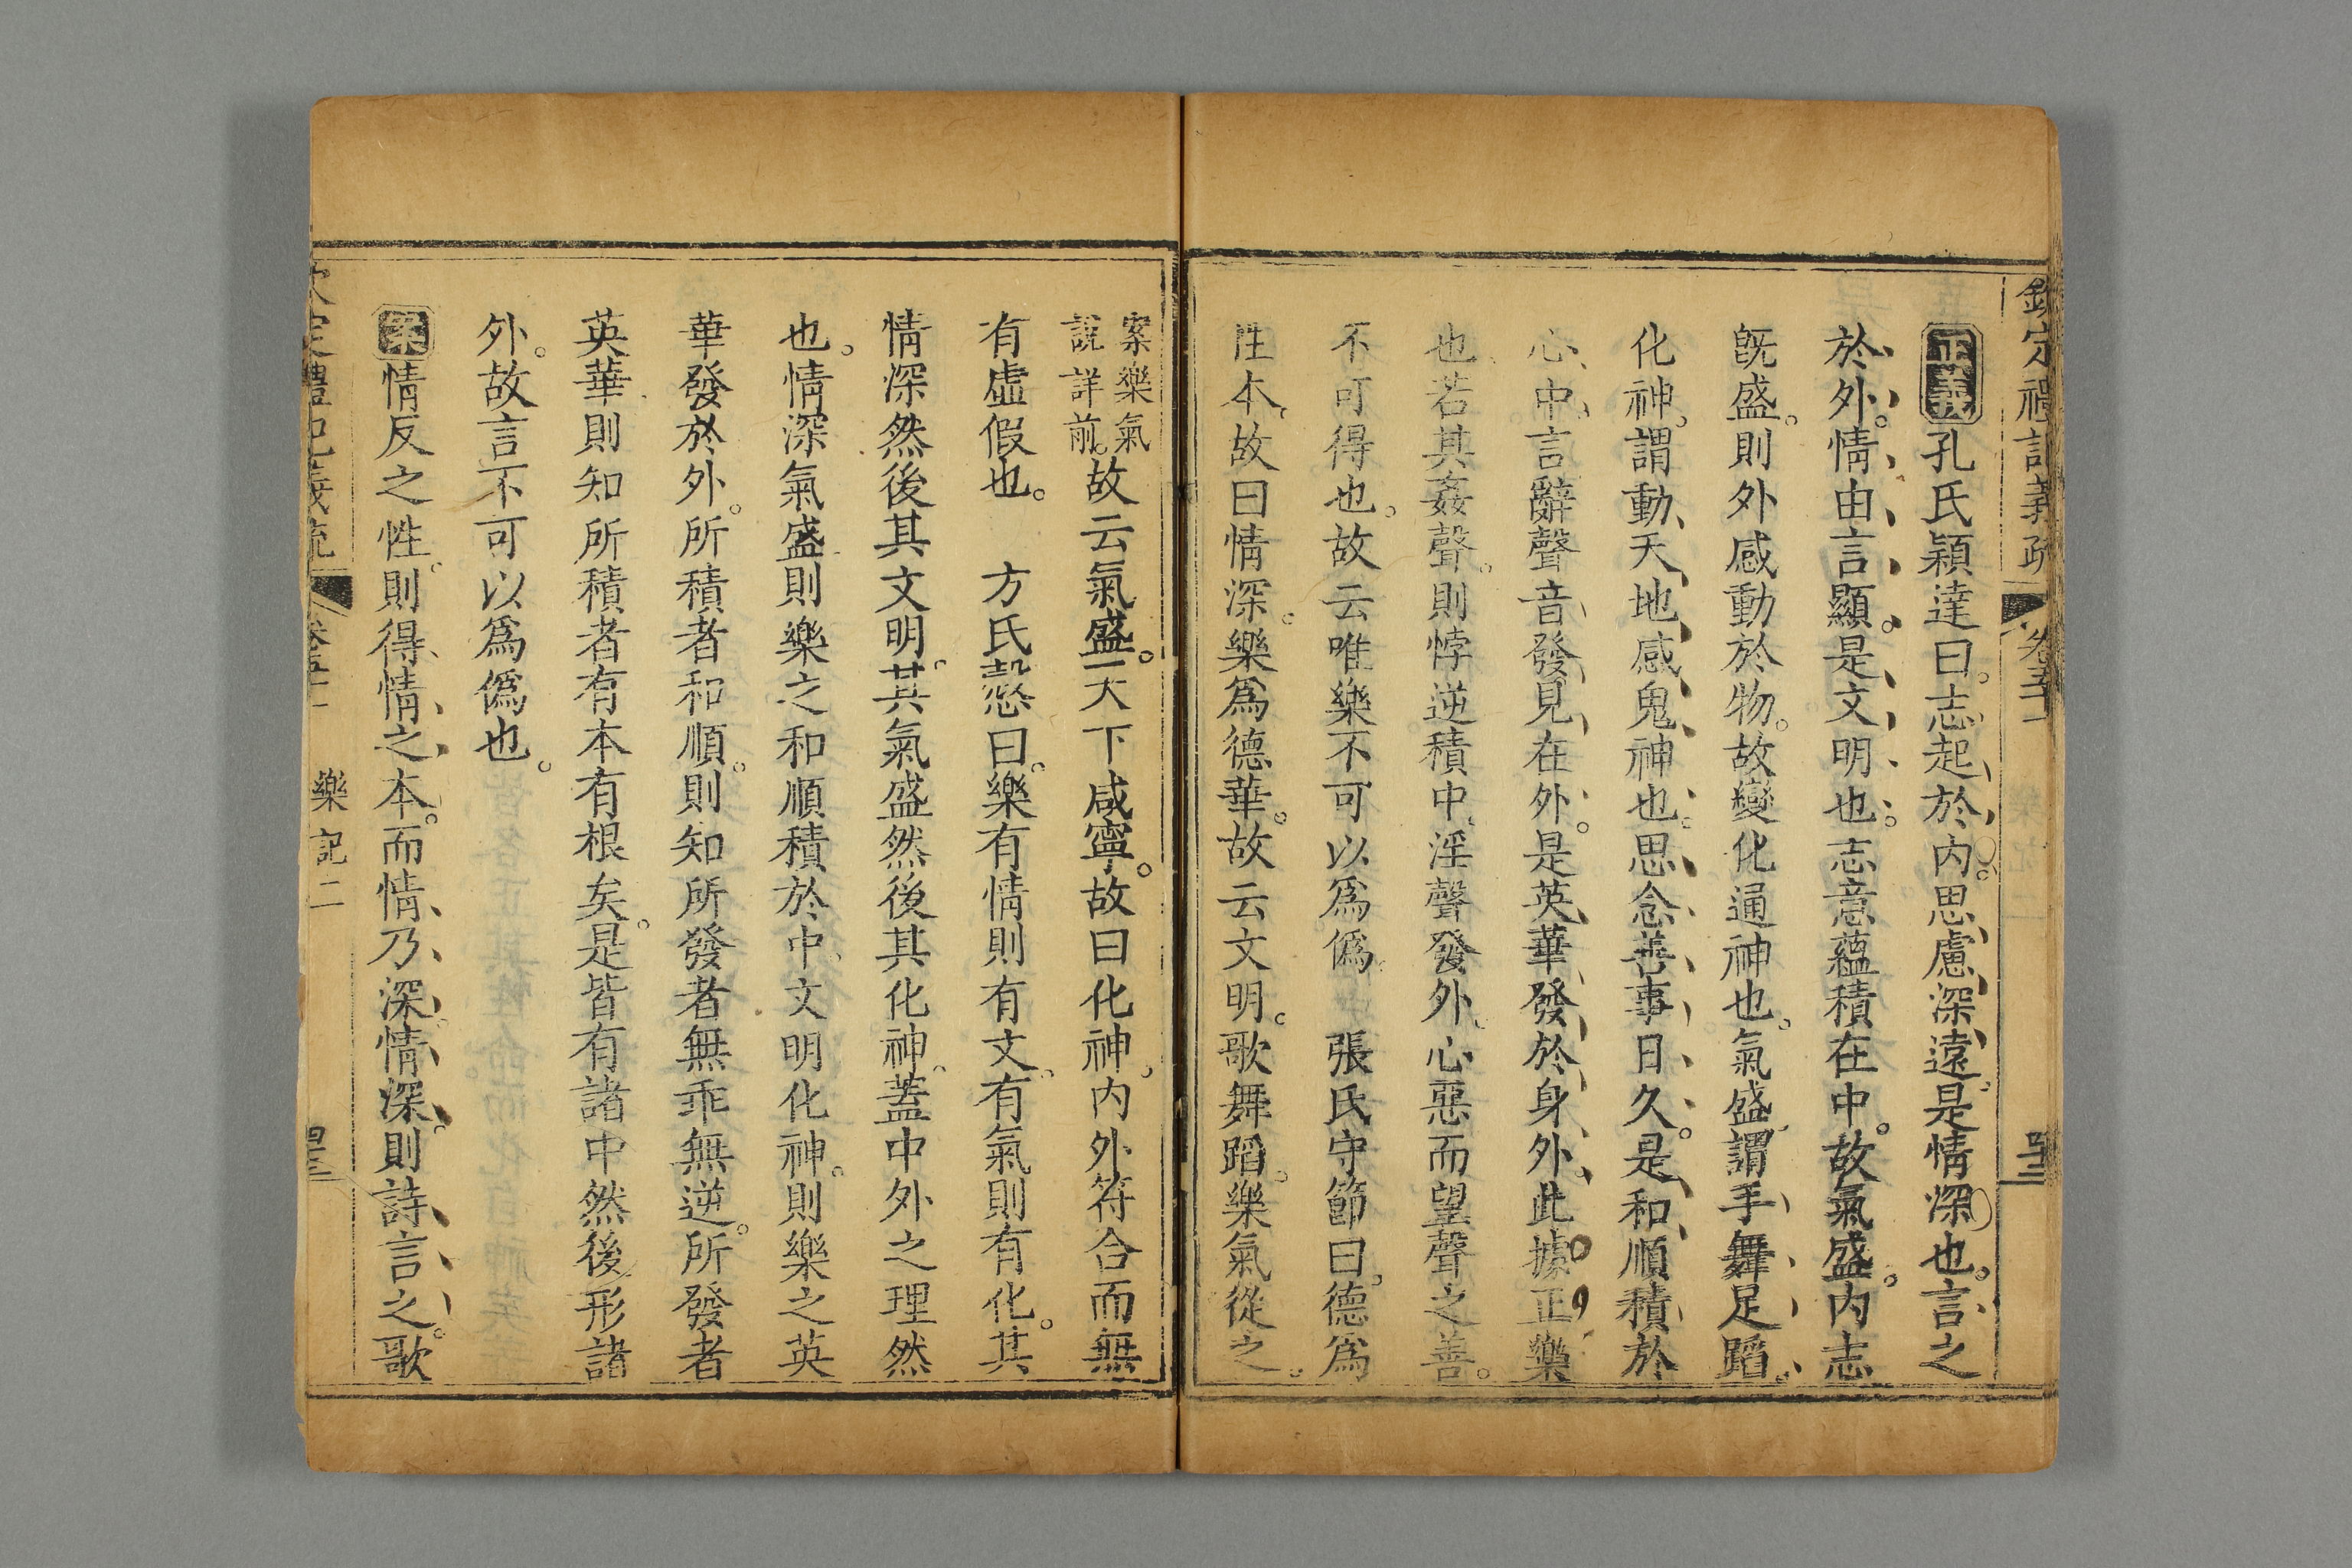 欽定禮記義疏 卷五十一 四十三
正義孔氏穎達曰。志起於內。思慮深遠。是情深也。言之
於外。情由言顯。是文明也。志意蘊積在中。故氣盛。內志
旣盛。則外感動於物。故變化通神也。氣盛。謂手舞足蹈。
化神。謂動天地感鬼神也。思念善事日久。是和順積於
心中。言辭聲音發見在外。是英華發於身外。此據正樂
也。若其姦聲。則悖逆積中。淫聲發外。心惡而望聲之善。
不可得也。故云唯樂不可以爲僞。　張氏守節曰。德爲
性本。故曰情深。樂爲德華。故云文明。歌舞蹈。樂氣從之。
案樂氣
說詳前。
故云氣盛。天下咸寧。故曰化神。內外符合而無
有虛假也。　方氏慤曰。樂有情則有文。有氣則有化。其
情深然後其文明。其氣盛然後其化神。蓋中外之理然
也。情深氣盛則樂之和順積於中。文明化神。則樂之英
華發於外。所積者和順。則知所發者無乖無逆。所發者
英華則知所積者有本有根矣。是皆有諸中然後形諸
外。故言不可以爲僞也。
案情反之性。則得情之本。而情乃深。情深。則詩言之。歌
欽定禮記義疏 卷五十一 樂記二 四十三